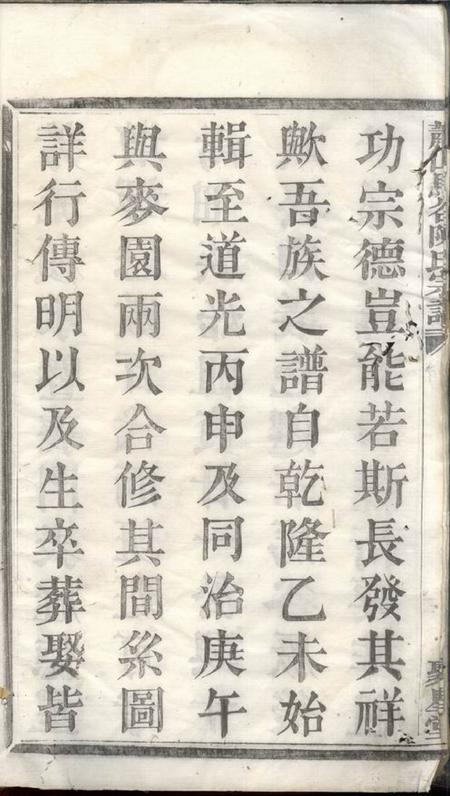 功宗德豈能若斯長發其祥
歟吾族之譜自乾隆乙未始
輯至道光丙申及同治庚午
與麥園兩次合修其間系圖
詳行傳明以及生卒葬娶皆